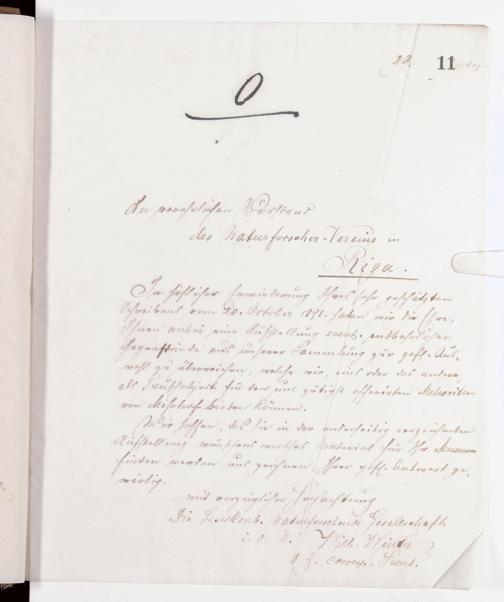 11
O
An verehrlichen Vorstand
des Naturforscher-Vereins in
Riga.
In höflicher Erwiederung Ihres sehr geschätzten
Schreibens vom 20. October 1891. haben wir die Ehre,
Ihnen anbei eine Aufstellung event. entbehrlicher
Gegenstände aus unserer Sammlung zur gefl. Aus-
wahl zu überreichen, welche wir, eins oder das andere,
als Tauschobjekt für den uns gütigst offerirten Meteoriten
von Misshof bieten können.
Wir hoffen, daß Sie in der anderseitig verzeichneten
Aufstellung wünschenswerthes Material für Ihr Museum
finden werden und zeichnen, Ihrer gefl. Antwort ge-
wärtig,
mit vorzüglicher Hochachtung
Die Senckenb. Naturforschende Gesellschaft
i. d. A. Wilh. Winter
d. Z. corresp. Secret.